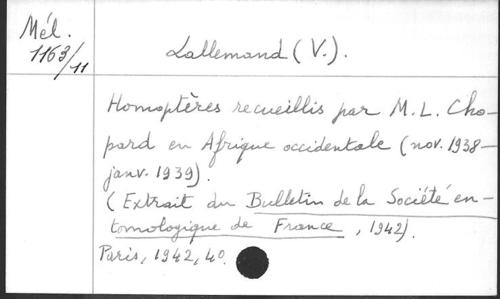 Mél.
1163/11
Lallemand (V.).
Homoptères recueillis par M. L. Cho-
pard en Afrique occidentale (nov. 1938-
janv. 1939).
(Extrait du Bulletin de la Société en-
tomologique de France, 1942).
Paris, 1942, 4o.